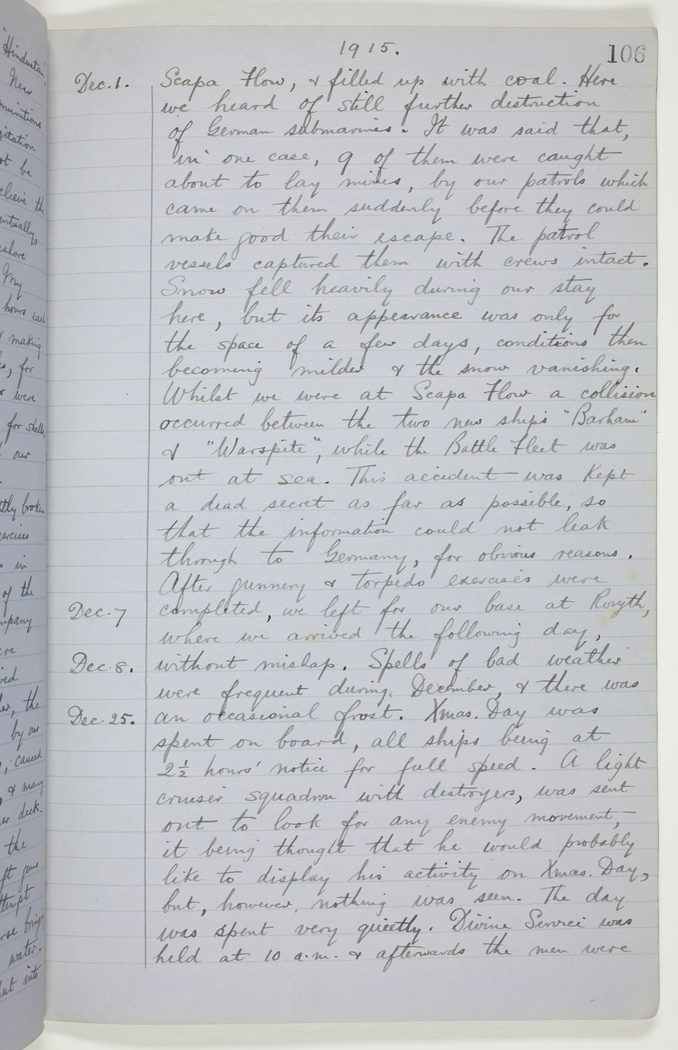 "Hindustan".
New
munitions
ot be
elieve the
entually,
eshore
My
hours each
making
for
were
for shells,
our
tly broken
exercises
in
of the
mpany
ved
the
by our
caused
& many
er deck.
the
ft guns
ttempt
water.
but into
1915.
106
Dec. 1. Scapa Flow, & filled up with coal. Here
we heard of still further destruction
of German submarines. It was said that,
in one case, 9 of them were caught
about to lay mines, by our patrols which
came on them suddenly before they could
make good their escape. The patrol
vessels captured them with crews intact.
Snow fell heavily during our stay
here, but its appearance was only for
the space of a few days, conditions then
becoming milder & the snow vanishing.
Whilst we were at Scapa Flow a collision
occurred between the two new ships "Barham"
& "Warspite", while the Battle Fleet was
out at sea. This accident was kept
a dead secret as far as possible, so
that the information could not leak
through to Germany, for obvious reasons.
After gunnery & torpedo exercises were
Dec. 7 completed, we left for our base at Rosyth,
where we arrived the following day,
Dec. 8. without mishap. Spells of bad weather
were frequent during December, & there was
Dec. 25. an occasional frost. Xmas. Day was
spent on board, all ships being at
2½ hours' notice for full speed. A light
cruiser squadron with destroyers, was sent
out to look for any enemy movement,
it being thought that he would probably
like to display his activity on Xmas. Day,
but, however, nothing was seen. The day
was spent very quietly. Divine Service was
held at 10 a.m. & afterwards the men were